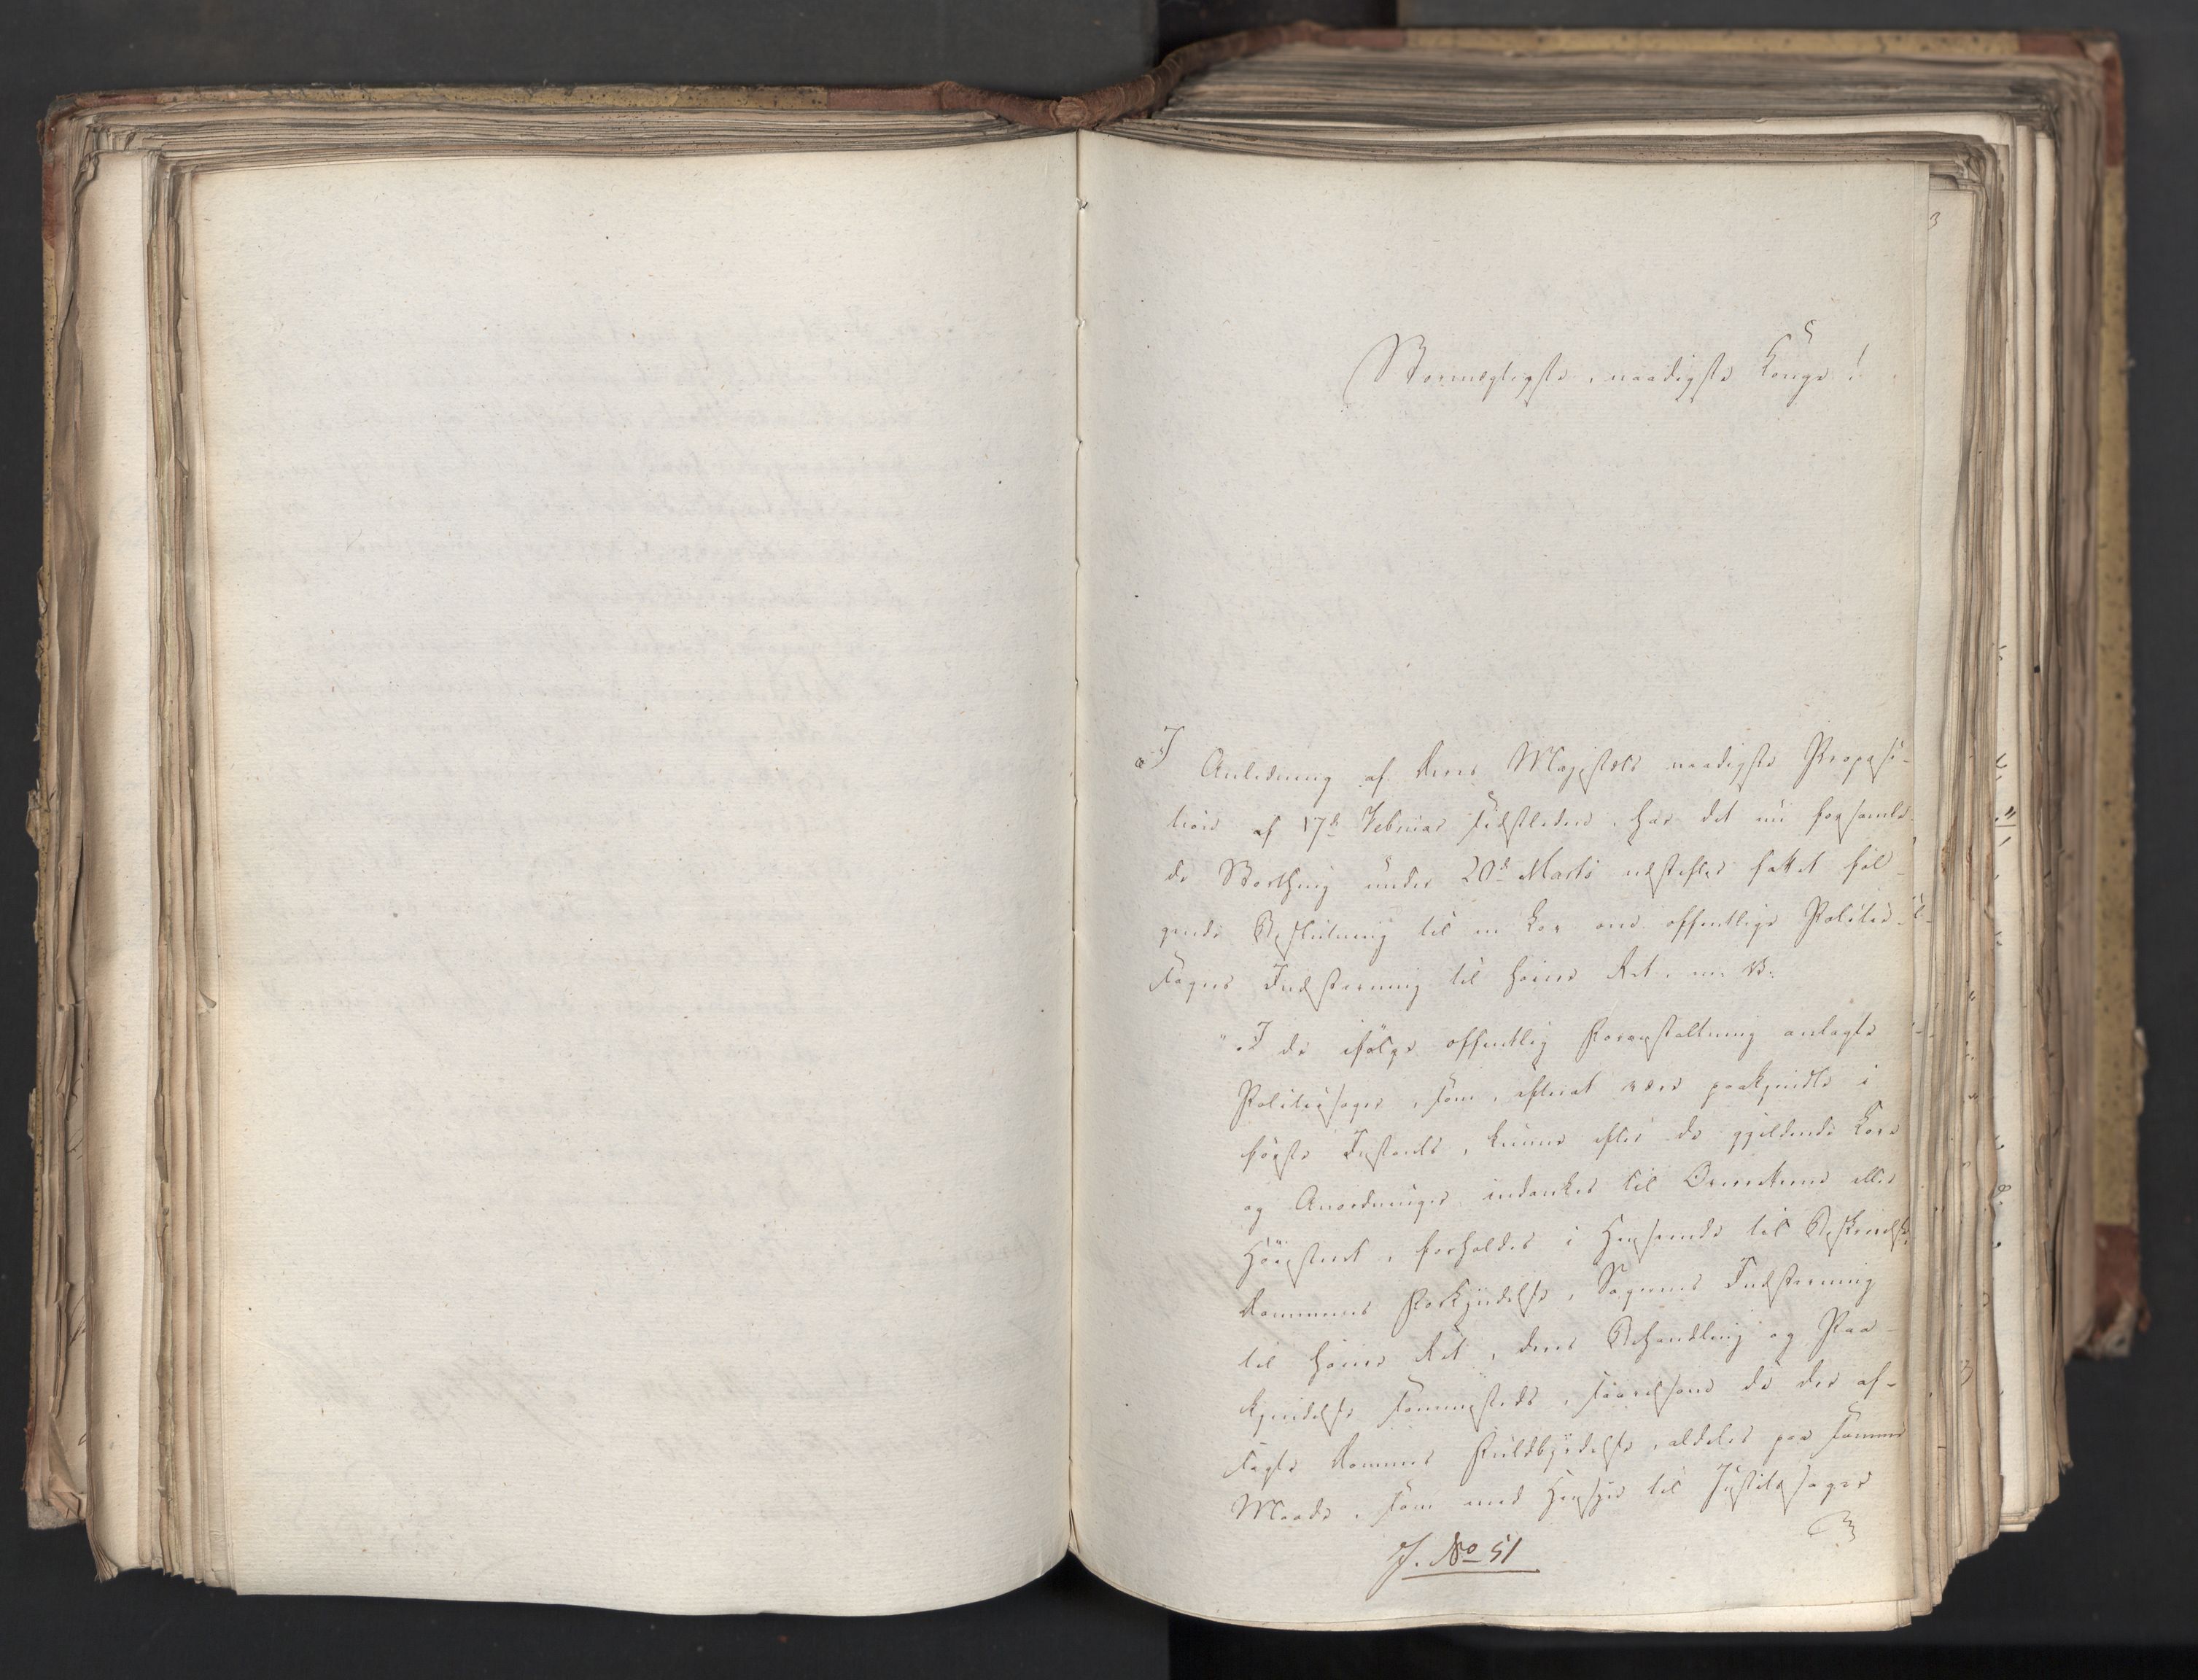 Stormægtigste, naadigste Konge!
I Anledning af Deres Majestæts naadigste Proposi-
tion af 17de Februar sidstleden, har det nu forsamle-
de Storthing under 20de Marts næstefter fattet føl-
gende Beslutning til en Lov om offentlige Politie-
sagers Indstevning til høiere Ret, m: V:
"I de ifølge offentlig Foranstaltning anlagte
Politiesager, som, efterat være paakjendte i
første Instants, kunne efter de gjeldende Love
og Anordninger indankes til Overretterne eller
Höiesteret, forholdes i Henseende til Beskrivelse,
Dommenes Forkyndelse, Sagernes Indstevning
til høiere Ret, deres Behandling og Paa-
kjendelse sammesteds, saavelsom de der af-
sagte Dommes Fuldbyrdelse, aldeles paa samme
Maade, som med Hensyn til Justitssager
J. No 51